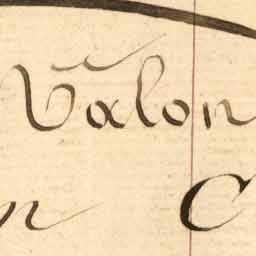 Valon
n C